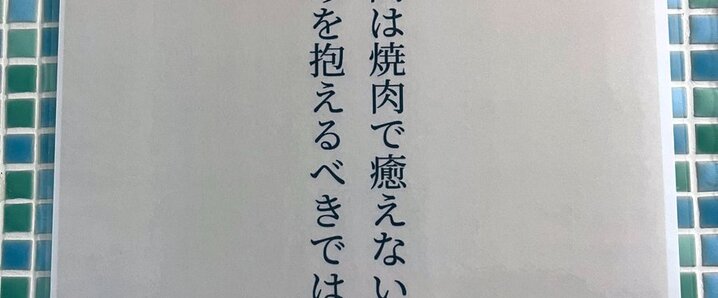 は焼肉で癒えない
を抱えるべきでは